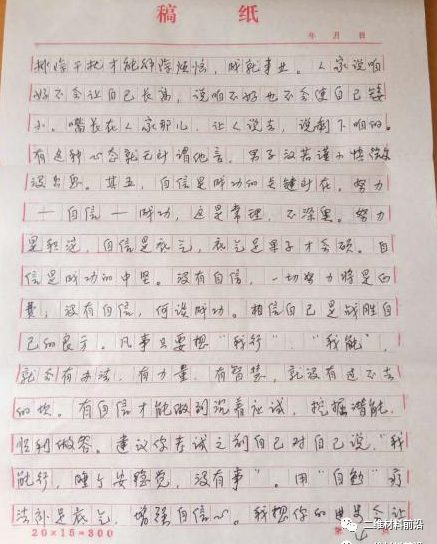 稿 纸
年 月 日
排除干扰才能解除烦恼,成就事业。人家说咱
好不会让自己长高,说咱不好也不会使自己矮
小。嘴长在人家那儿,让人说去,说剩下咱的。
有这种心态就无计谓他言。男子汉若谨小慎微
没出息。其五,自信是成功的关键所在。努力
—自信—成功,这是常理,不深奥。努力
是积淀,自信是底气,底气足果子才会硕。自
信是成功的中坚。没有自信,一切努力将是白
费,没有自信,何谈成功。相信自己是战胜自
己的良方。凡事只要想“我行”,“我能”,
就会有办法,有力量,有智慧,就没有过不去
的坎。有自信才能做到沉着应试,挖掘潜能,
胜利做答。建议你考试之前自己对自己说,“我
能行,睡个安稳觉,没有事”。用“自勉”疗
法补足底气,增强自信心。我想你的 会让
20×15=300
第
二维材料前沿